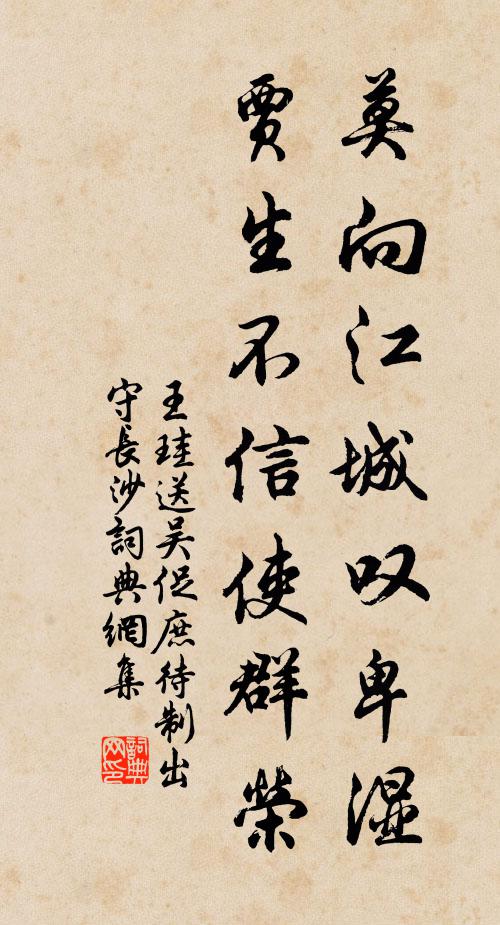 莫向江城叹卑湿
贾生不信使群荣
王珪送吴促庶待制出
守長沙詞典網集
詞典网印